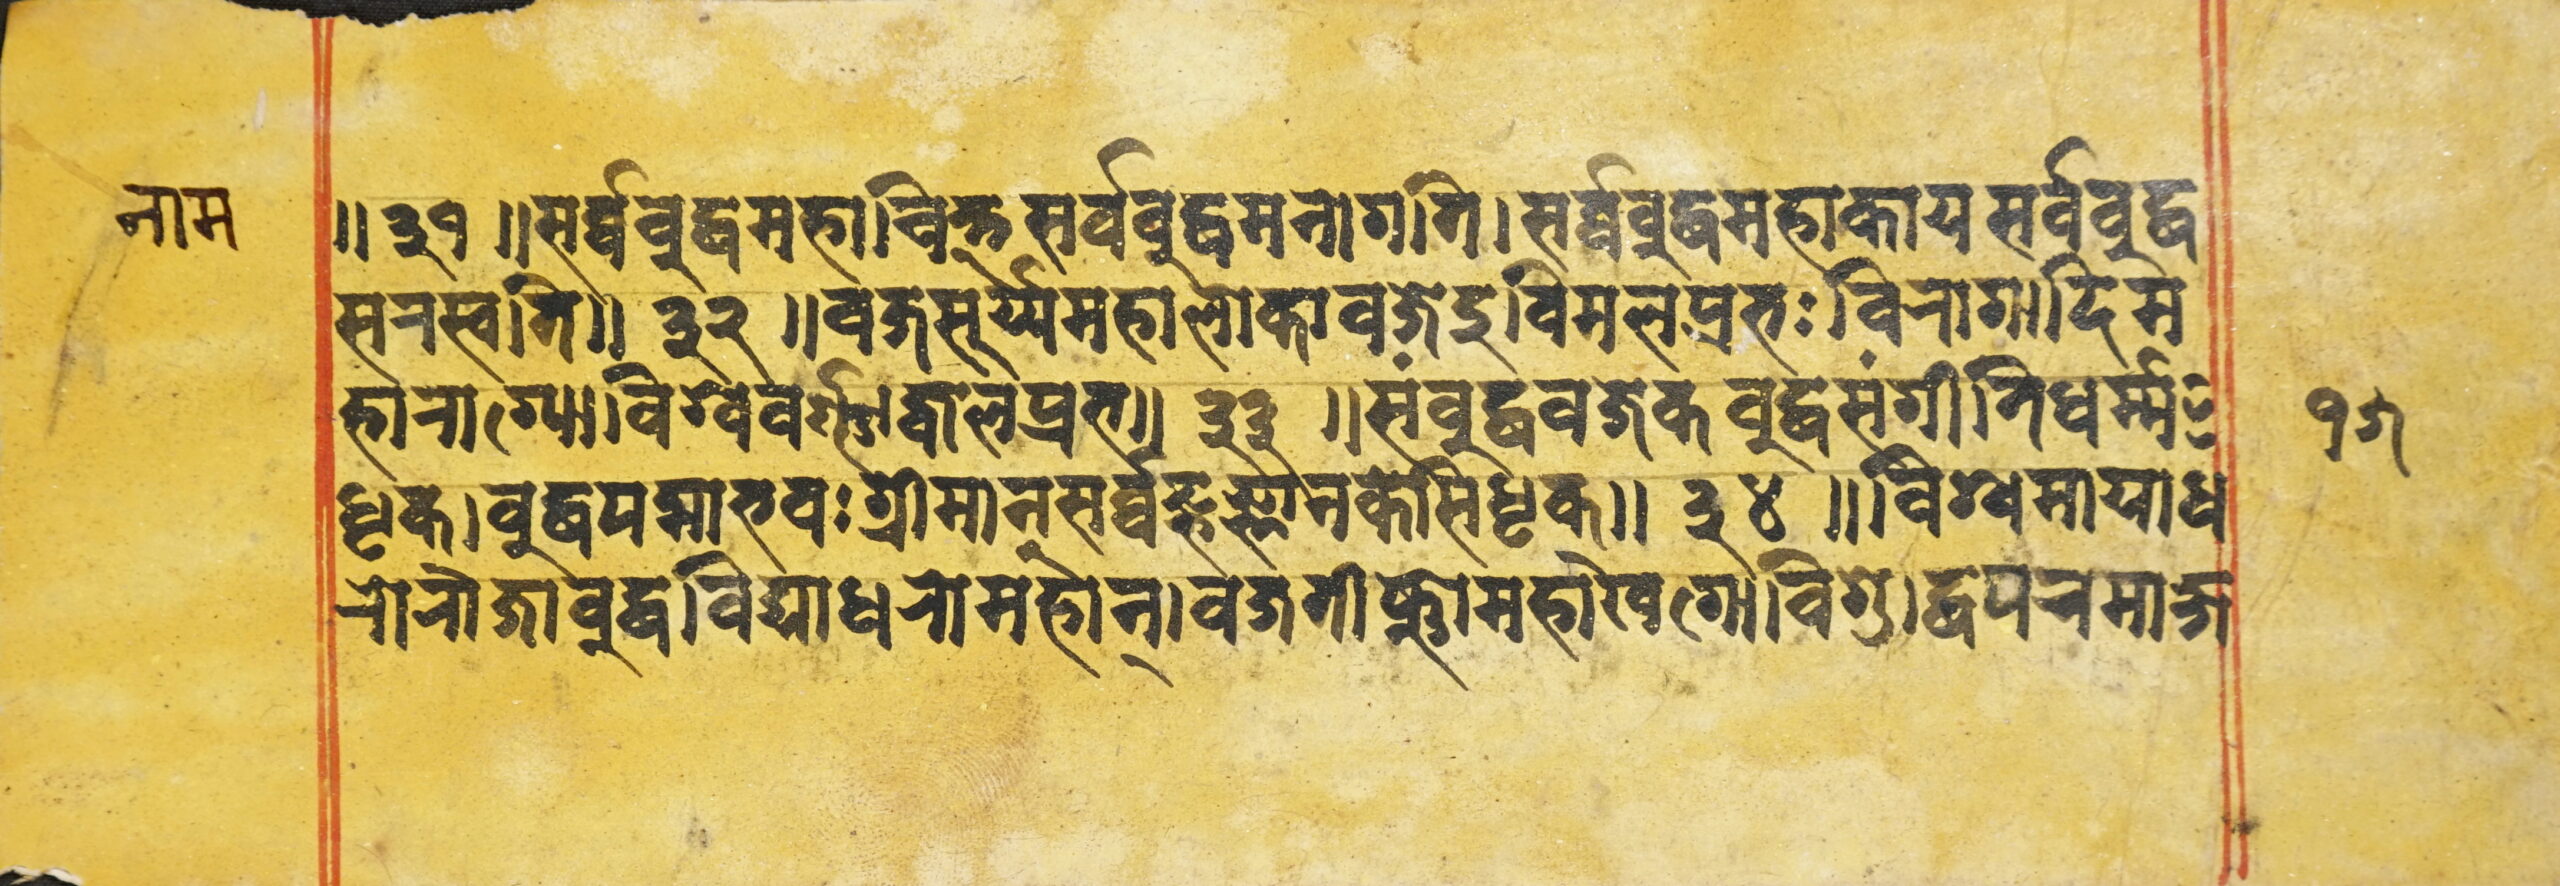 नाम
॥ ३१ ॥ सर्व्वबुद्धमहाचित्त सर्वबुद्धमनोगति। सर्व्वबुद्धमहाकाय सर्वबुद्ध
सरस्वति॥ ३२ ॥ वज्रसूर्य्यमहालोको वज्रेंदुविमलप्रभः विरागादिम
हारागो विश्ववर्ण्णोज्वालप्रभ॥ ३३ ॥ संबुद्धवज्रेक बुद्धसंगीतिधर्म्म
धृक। बुद्धपद्मोभवः श्रीमान् सर्व्वज्ञज्ञानकोसधृक॥ ३४ ॥ विश्वमायाध
रो राजा बुद्धविद्याधरो महान्। वज्रतीक्ष्णो महाखगो विशुद्धपरमाक्ष
१७